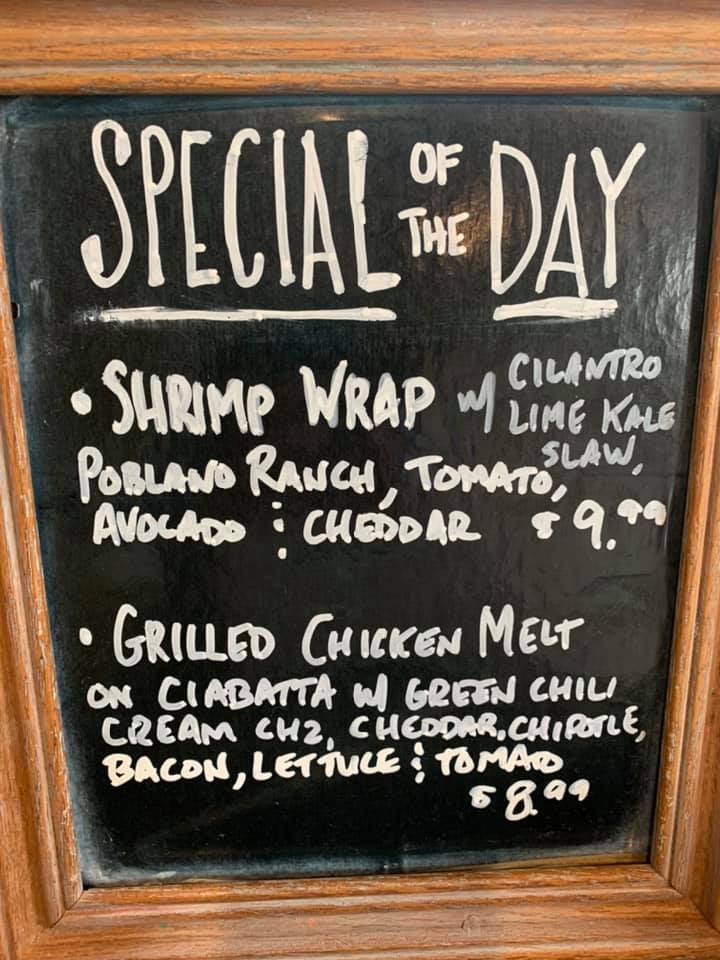 SPECIAL OF THE DAY
• SHRIMP WRAP W/ CILANTRO
LIME KALE
SLAW,
POBLANO RANCH, TOMATO,
AVOCADO & CHEDDAR $9.99
• GRILLED CHICKEN MELT
ON CIABATTA W/ GREEN CHILI
CREAM CHZ, CHEDDAR, CHIPOTLE,
BACON, LETTUCE & TOMATO
$8.99